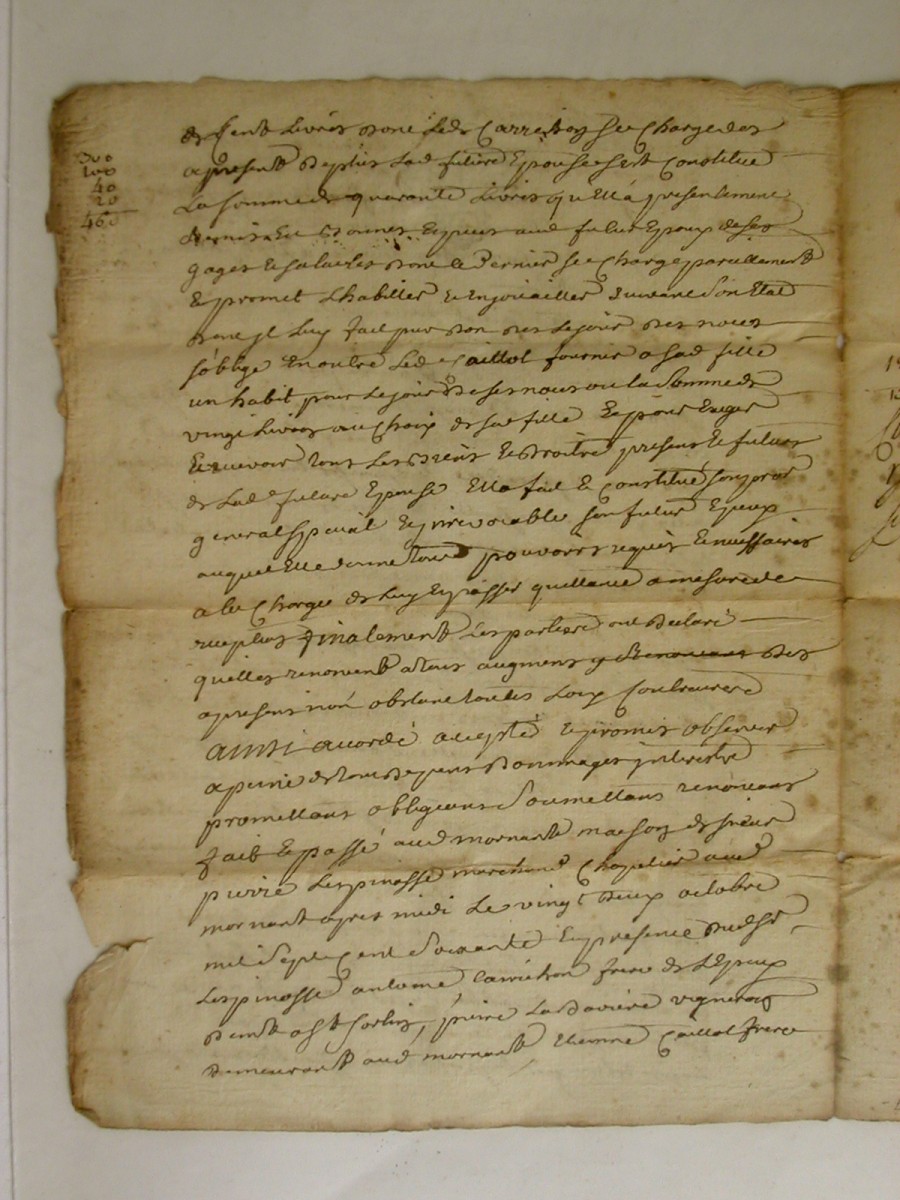 300
100
40
20
460
de cent Livres dont Led Carrichon se charge des
a present de plus Lad future Epouse sest Constitué
La somme de quarante Livres qu'Ella presentement
Remis Eu aud futur Epoux de ses
gages et salaires dont ce dernier se charge pareillement
Et promet L'habiller et Enjouailler suivant son Etat
dont jl Luy fait pur don des Lejour des noces
soblige En outre Led Caillot fournir a sad fille
un habit pour Lejour de ses noces ou la somme de
vingt Livres au Choix de sad fille Et pour Exiger
Recevoir tous Les Biens Et Droits presens Et futurs
de Lad future Epouse Elle fait Et Constitué son procr
general special Et jrrevocable son futur Epoux
auquel Elle donne tous pouvoirs requis Et necessaires
a la Charge de Luy En passer quittance a mesure de
receptes finalement Les parties ont Declaré
quelles renoncent a tous augmens des
a present non obstant toutes Loix Contraires
ainsi accordé accepté Et promis observer
a peine de tous depens Dommages jnterests
promettans obligeans Soumettans renoncans
fait Et passé aud mornant maison de sieur
pierre Lespinasse marchand Chapelier aud
mornant apres midi Le vingt deux octobre
mil Sept Cent Soixante En presence dud sr
Lespinasse antoine Carrichon frere de L'Epoux
demt a St Sorlin, pierre La vigneron
demeurant aud mornant, Etienne Caillot frere